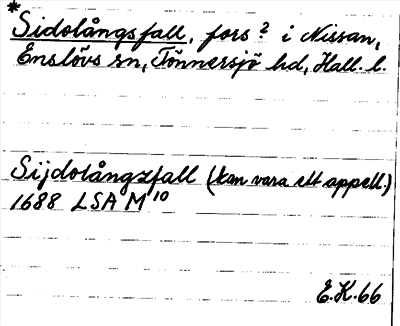 * Sidolångsfall, fors? i Nissan,
Enslövs sn, Tönnersjö hd, Hall. l.
Sijdolångzfall (kan vara ett appell.)
1688 LSA M 10
E.K.66